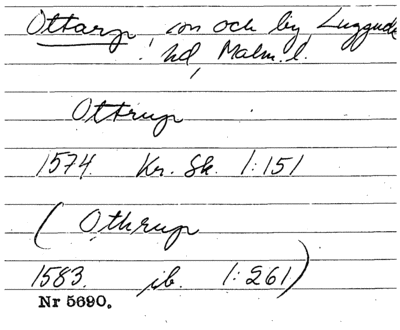 Ottarp, sn och by, Luggude
hd, Malm. l.
Ottrup
1574. Kr. Sk. 1:151
(Othrup
1583. ib. 1:261)
Nr 5690.